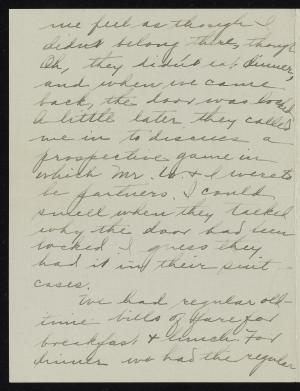 me feel as though I
didn't belong there, though
Oh, they didn't eat dinner,
and when we came
back, the door was locked.
A little later they called
me in to discuss a
prospective game in
which Mr. W. & I were to
be partners. I could
smell when they talked
why the door had been
locked. I guess they
had it in their suit
cases.
We had regular old-
time bills of fare for
breakfast & lunch. For
dinner we had the regular